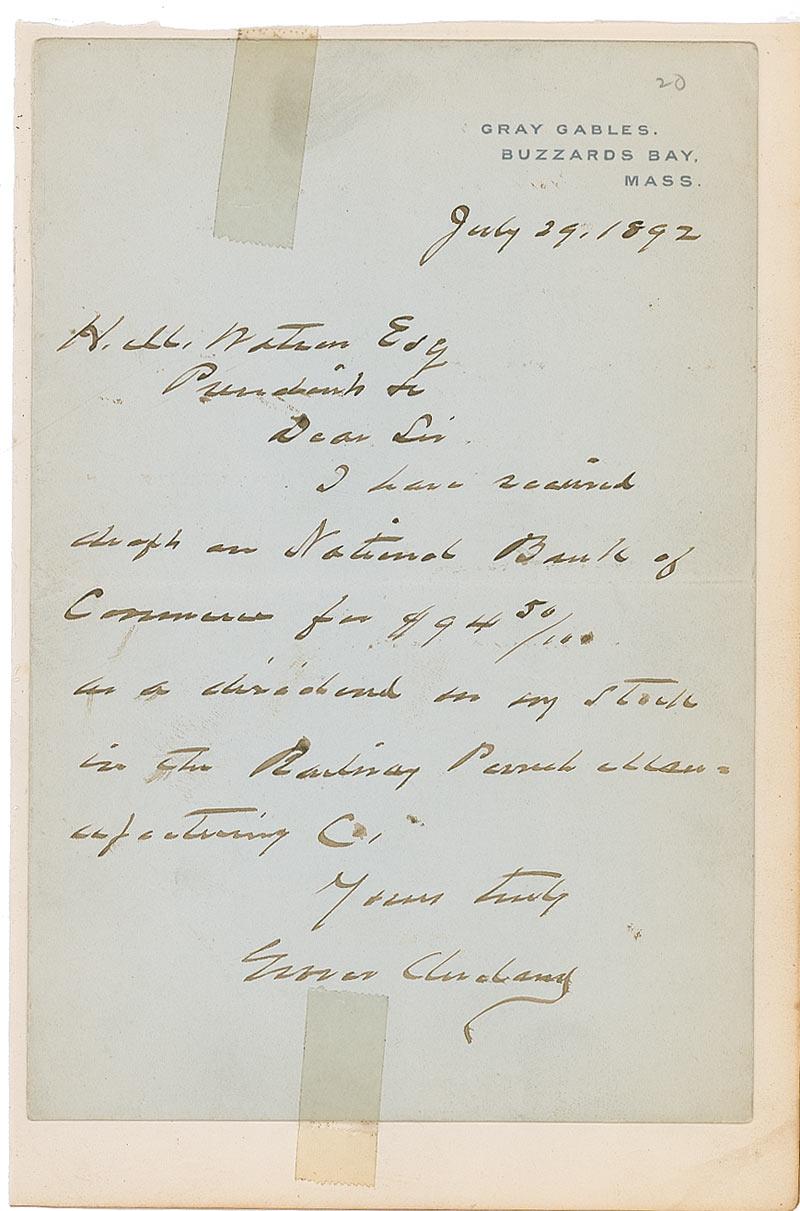 20
GRAY GABLES.
BUZZARDS BAY,
MASS.
July 29, 1892
H. M. Watson Esq
President &c
Dear Sir
I have received
draft on National Bank of
Commerce for $94 50/100
as a dividend on my stock
in the Railway Punch Man=
ufacturing Co,
Yours truly
Grover Cleveland